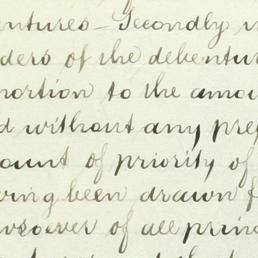 entures - Secondly in
ders of the debentur
portion to the amou
d without any pre
ount of priority of
ving been drawn f
over of all prin